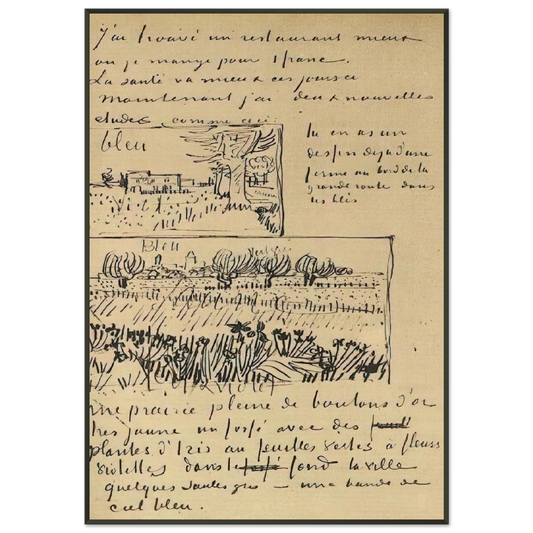 J'ai trouvé un restaurant mieux
ou je mange pour 1 franc.
La santé va mieux ces jours ci
Maintenant j'ai deux nouvelles
etudes comme ceci
bleu
Tu en as un
dessin deja d'une
ferme au bord de la
grande route dans
les blés
Bleu
Violet
Une prairie pleine de boutons d'or
tres jaune un fossé avec des
plantes d'Iris au feuilles vertes à fleurs
violettes dans le fond la ville
quelques saules gris – une bande de
ciel bleu.